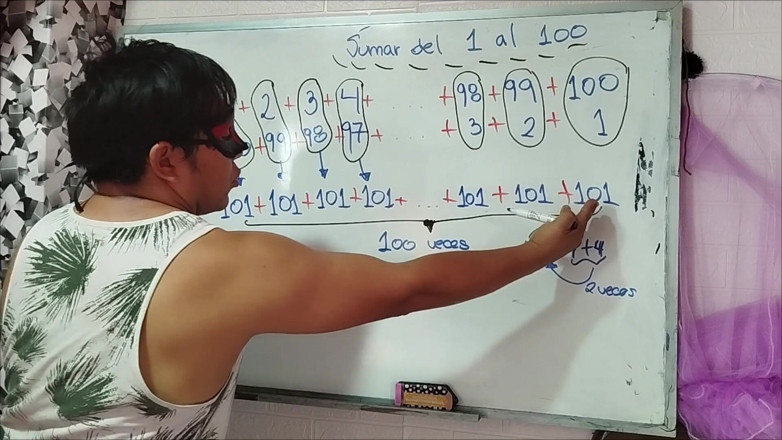 Sumar del 1 al 100
+ 2 + 3 + 4 + ..... + 98 + 99 + 100
+ 99 + 98 + 97 + + 3 + 2 + 1
101 + 101 + 101 + 101 + ..... + 101 + 101 + 101
100 veces
+ 4
2 veces